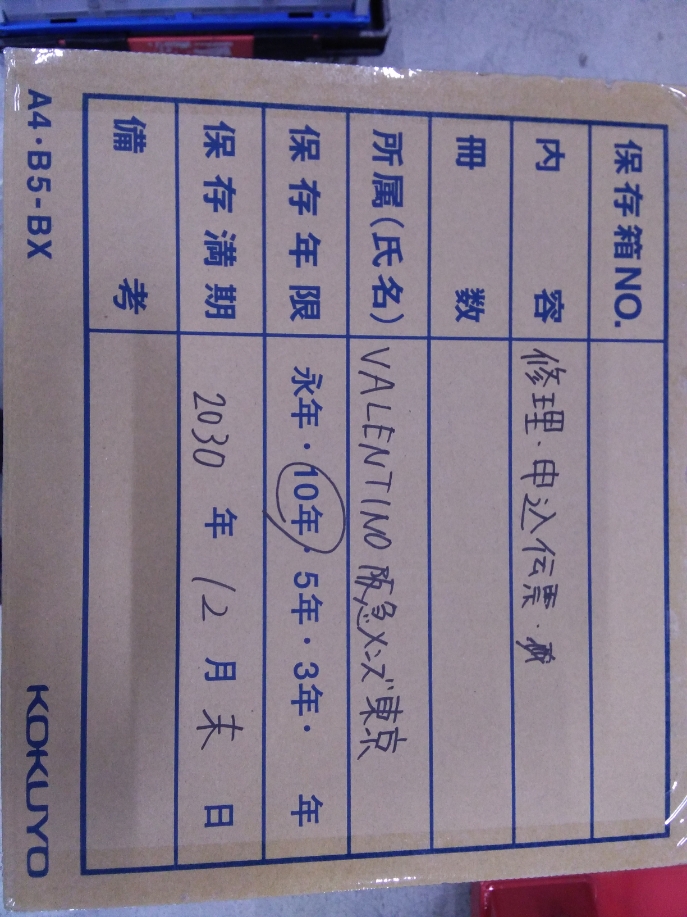 保存箱NO.
内容 修理・申込伝票・
冊数
所属(氏名) VALENTINO 阪急メンズ東京
保存年限 永年・10年・5年・3年・ 年
保存満期 2030年12月末日
備考
A4・B5-BX KOKUYO